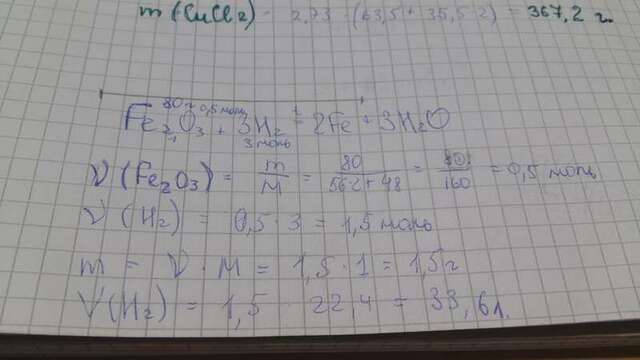 m (CuCl2) = 2,73 · (63,5 + 35,5·2) = 367,2 г.
80 г 0,5 моль
Fe2O3 + 3H2 = 2Fe + 3H2O
3 моль
ν (Fe2O3) = m/M = 80/56·2+48 = 80/160 = 0,5 моль
ν (H2) = 0,5 · 3 = 1,5 моль
m = ν · M = 1,5 · 1 = 1,5 г
V(H2) = 1,5 22,4 = 33,6 л.